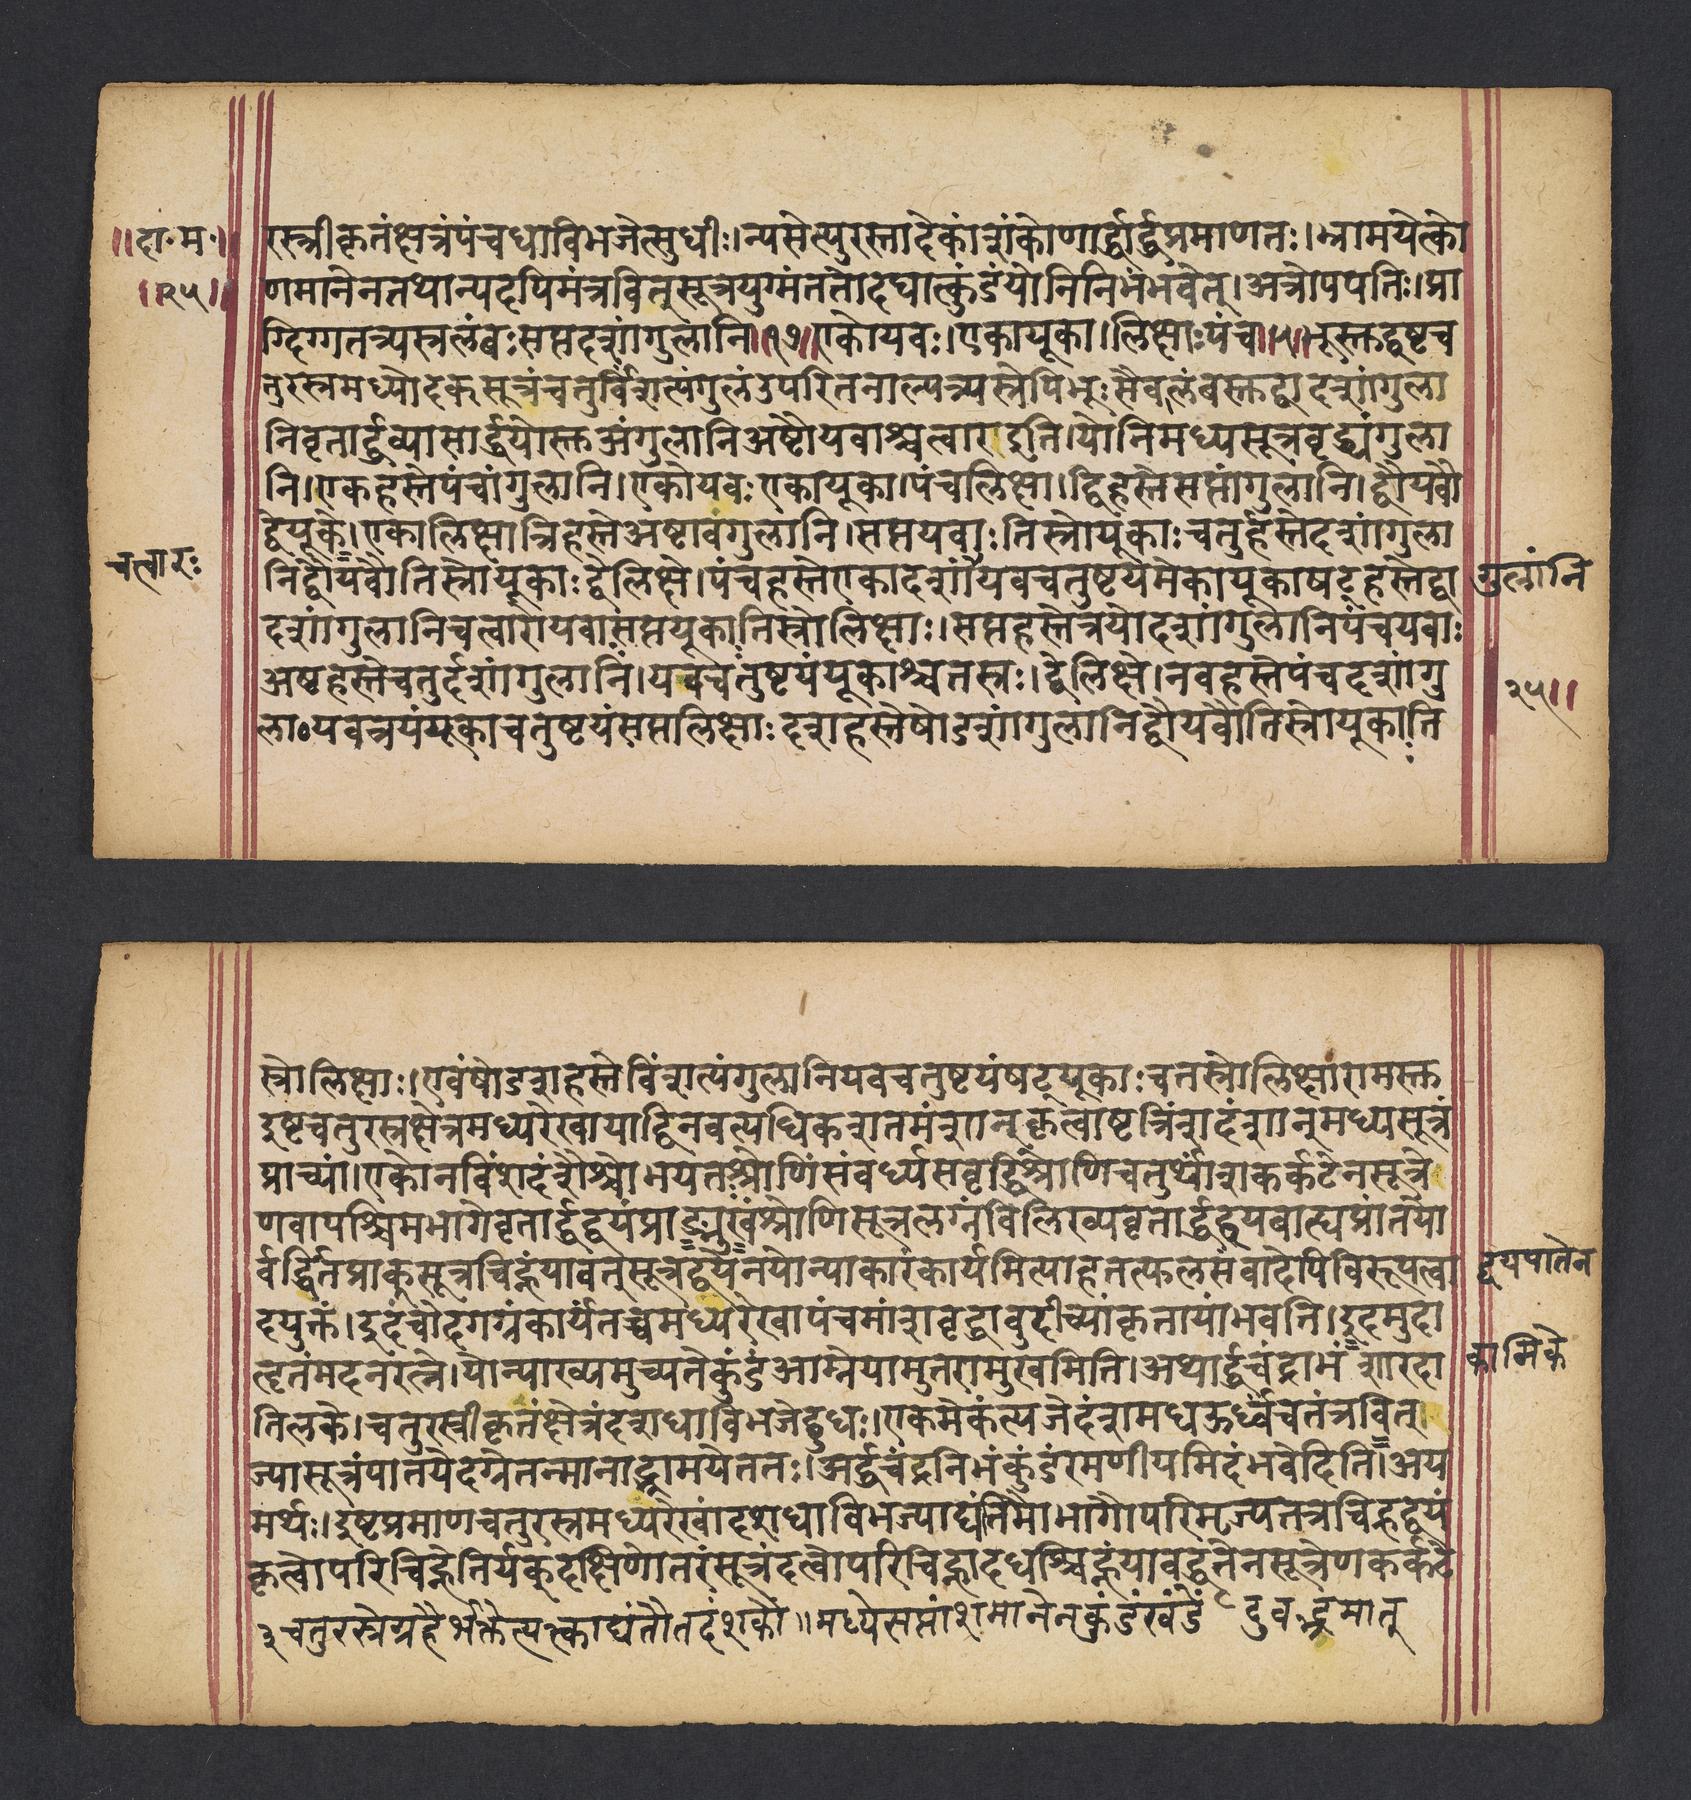 ॥दा॰म॰॥
॥२५॥
रस्त्रीकृतंक्षेत्रंपंचधाविभजेत्सुधीः।न्यसेत्पुरस्तादेकांशंकोणार्द्धार्द्धप्रमाणतः।भ्रामयेत्को
णमानेनतथान्यदपिमंत्रवित्सूत्रयुग्मंततोदद्यात्कुंडंयोनिनिभंभवेत्।अत्रोपपत्तिः।प्रा
ग्दिग्गतत्र्यस्त्रलंबःसप्तदशांगुलानि॥१७॥एकोयवः।एकायूका।लिक्षाःपंच॥५॥भूस्तद्दष्टच
तुरस्त्रमध्योदक्सूत्रंचतुर्विंशत्यंगुलंउपरितनाल्पत्र्यस्त्रेपिभूःसैवलंबस्तद्वादशांगुला
निवृतार्द्धव्यासार्द्धयोस्तअंगुलानिअष्टौयवाश्चत्वारइति।योनिमध्यसूत्रवृद्ध्यंगुला
नि।एकहस्तेपंचांगुलानि।एकोयवःएकायूका।पंचलिक्षा।द्विहस्तेसप्तांगुलानि।द्वौयवौ
द्वेयूके।एकालिक्षात्रिहस्तेअष्टावंगुलानि।सप्तयवाःतिस्त्रोयूकाःचतुर्हस्तेदशांगुला
चत्वारः
निद्वौयवौतिस्त्रोयूकाःद्वेलिक्षे।पंचहस्तेएकादशांयवचतुष्टयमेकायूकाषट्हस्तेद्वा
गुलानि
दशांगुलानिचत्वारोयवासप्तयूकातिस्त्रोलिक्षाः।सप्तहस्तेत्रयोदशांगुलानिपंचयवाः
अष्टहस्तेचतुर्दशांगुलानि।यवचतुष्टयंयूकाश्चतस्त्रः।द्वेलिक्षे।नवहस्तेपंचदशांगु
२५॥
ला॰यवत्रयंयूकाचतुष्टयंसप्तलिक्षाःदशहस्तेषोडशांगुलानिद्वौयवौतिस्त्रोयूकाति
स्त्रोलिक्षाः।एवंषोडशहस्तेविंशत्यंगुलानियवचतुष्टयंषट्यूकाःचतस्त्रोलिक्षारामस्त
इष्टचतुरस्त्रक्षेत्रमध्यरेखायाद्विनवत्यधिकशतमंशान्कृत्वाष्टत्रिंशदंशान्मध्यसूत्रं
प्राच्यां।एकोनविंशदंशैश्चोभयतश्रोणिंसंवर्ध्यसवृद्धिश्रोणिचतुर्थांशकर्कटेनसूत्रे
णवापश्चिमभागेवृतार्द्धद्वयंप्राङ्मुखंश्रोणिसूत्रलग्नंविलिख्यवृतार्द्धद्वयबाह्यप्रांतयो
र्वर्द्धितप्राक्सूत्रचिह्नंयावत्सूत्रद्वयेनयोन्याकारंकार्यमित्याहतत्फलसंवादेपिविरूपत्वा
द्वयपातेन
दयुक्तं।इदंचोदगग्रंकार्यंतच्चमध्यरेखापंचमांशवृद्धावुदीच्यांकृतायांभवति।इदमुदा
हृतंमदनरत्ने।योन्याख्यमुच्यतेकुंडंआग्नेयामुतरामुखमिति।अथार्द्धचंद्राभंशारदा
कामिके
तिलके।चतुरस्त्रीकृतंक्षेत्रंदशधाविभजेद्बुधः।एकमेकंत्यजेदंशमधऊर्ध्वंचतंत्रवित्।
ज्यासूत्रंपातयेदग्रेतन्मानाद्भ्रामयेततः।अर्द्धचंद्रनिभंकुंडंरमणीयमिदंभवेदिति।अय
मर्थः।इष्टप्रमाणचतुरस्त्रमध्यरेखांदशधाविभज्याद्यंतिमौभागौपरिमृज्यतत्रचिह्नद्वयं
कृत्वोपरिचिह्नेतिर्यक्दक्षिणोतरंसूत्रंदत्वोपरिचिह्नादधश्चिह्नंयावद्धृतेनसूत्रेणकर्कटे
३चतुरस्त्रेग्रहैर्भक्तेत्यत्काद्यंतौतदंशकौ॥मध्येसप्तांशमानेनकुंडंखंडेंदुवद्भ्रमात्